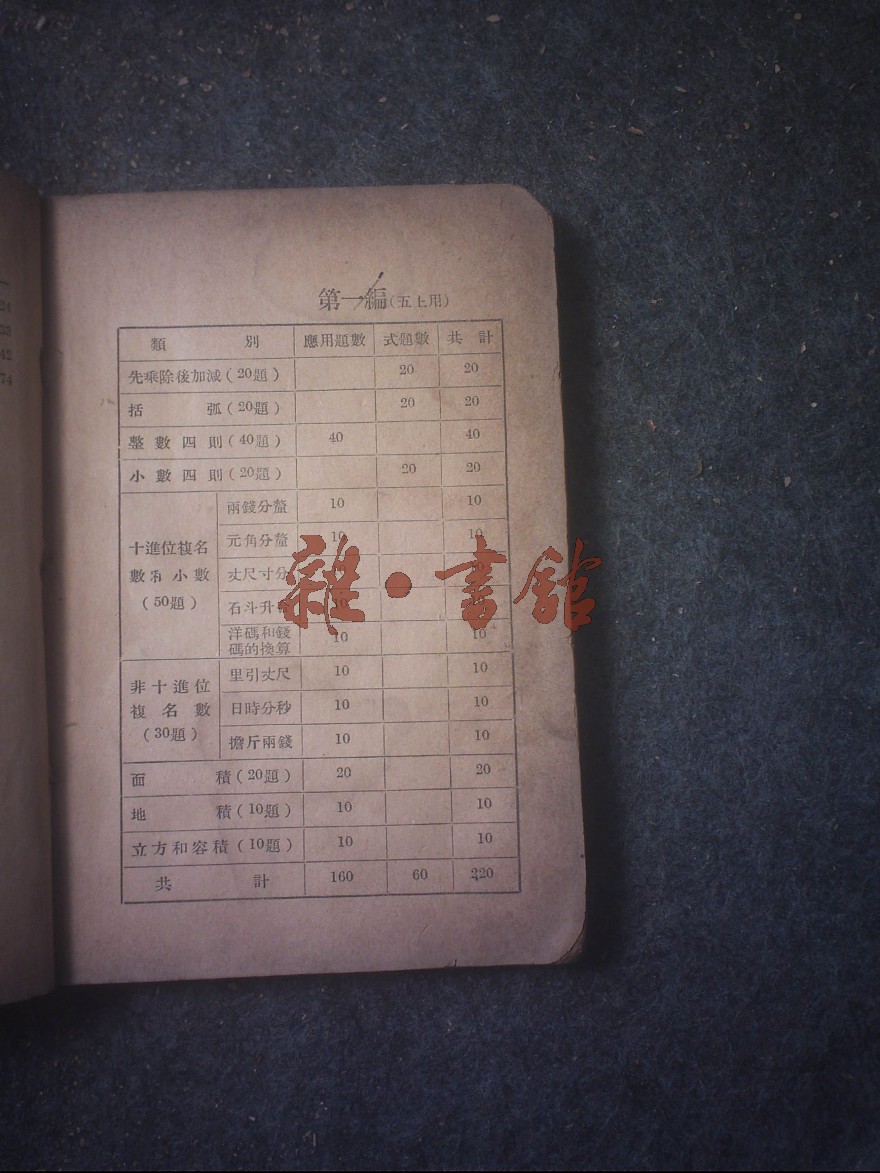 24
33
42
74
第一編(五上用)
類 別 應用題數 式題數 共 計
先乘除後加減(20題) 20 20
括 弧(20題) 20 20
整數四則(40題) 40 40
小數四則(20題) 20 20
十進位複名數和小數(50題) 兩錢分釐 10 10
元角分釐 10 10
丈尺寸分
石斗升
洋碼和錢碼的換算 10 10
非十進位複名數(30題) 里引丈尺 10 10
日時分秒 10 10
擔斤兩錢 10 10
面 積(20題) 20 20
地 積(10題) 10 10
立方和容積(10題) 10 10
共 計 160 60 220
雜·書館